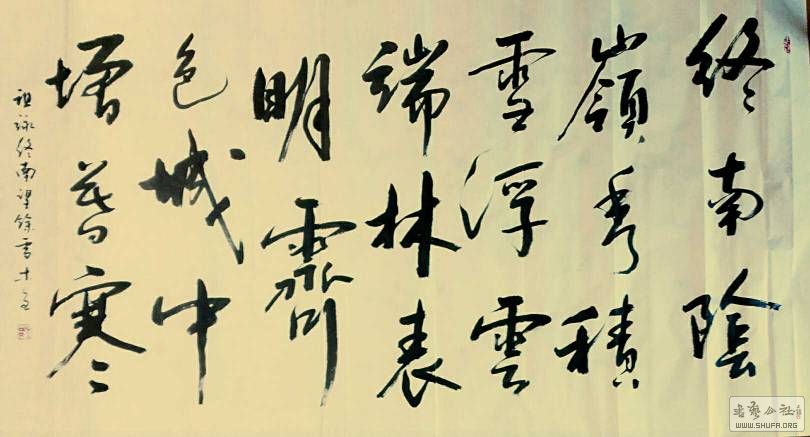 終南陰
嶺秀積
雪浮雲
端林表
明霽
色城中
增暮寒
祖詠終南望餘雪
書藝公社
WWW.SHUFA.ORG